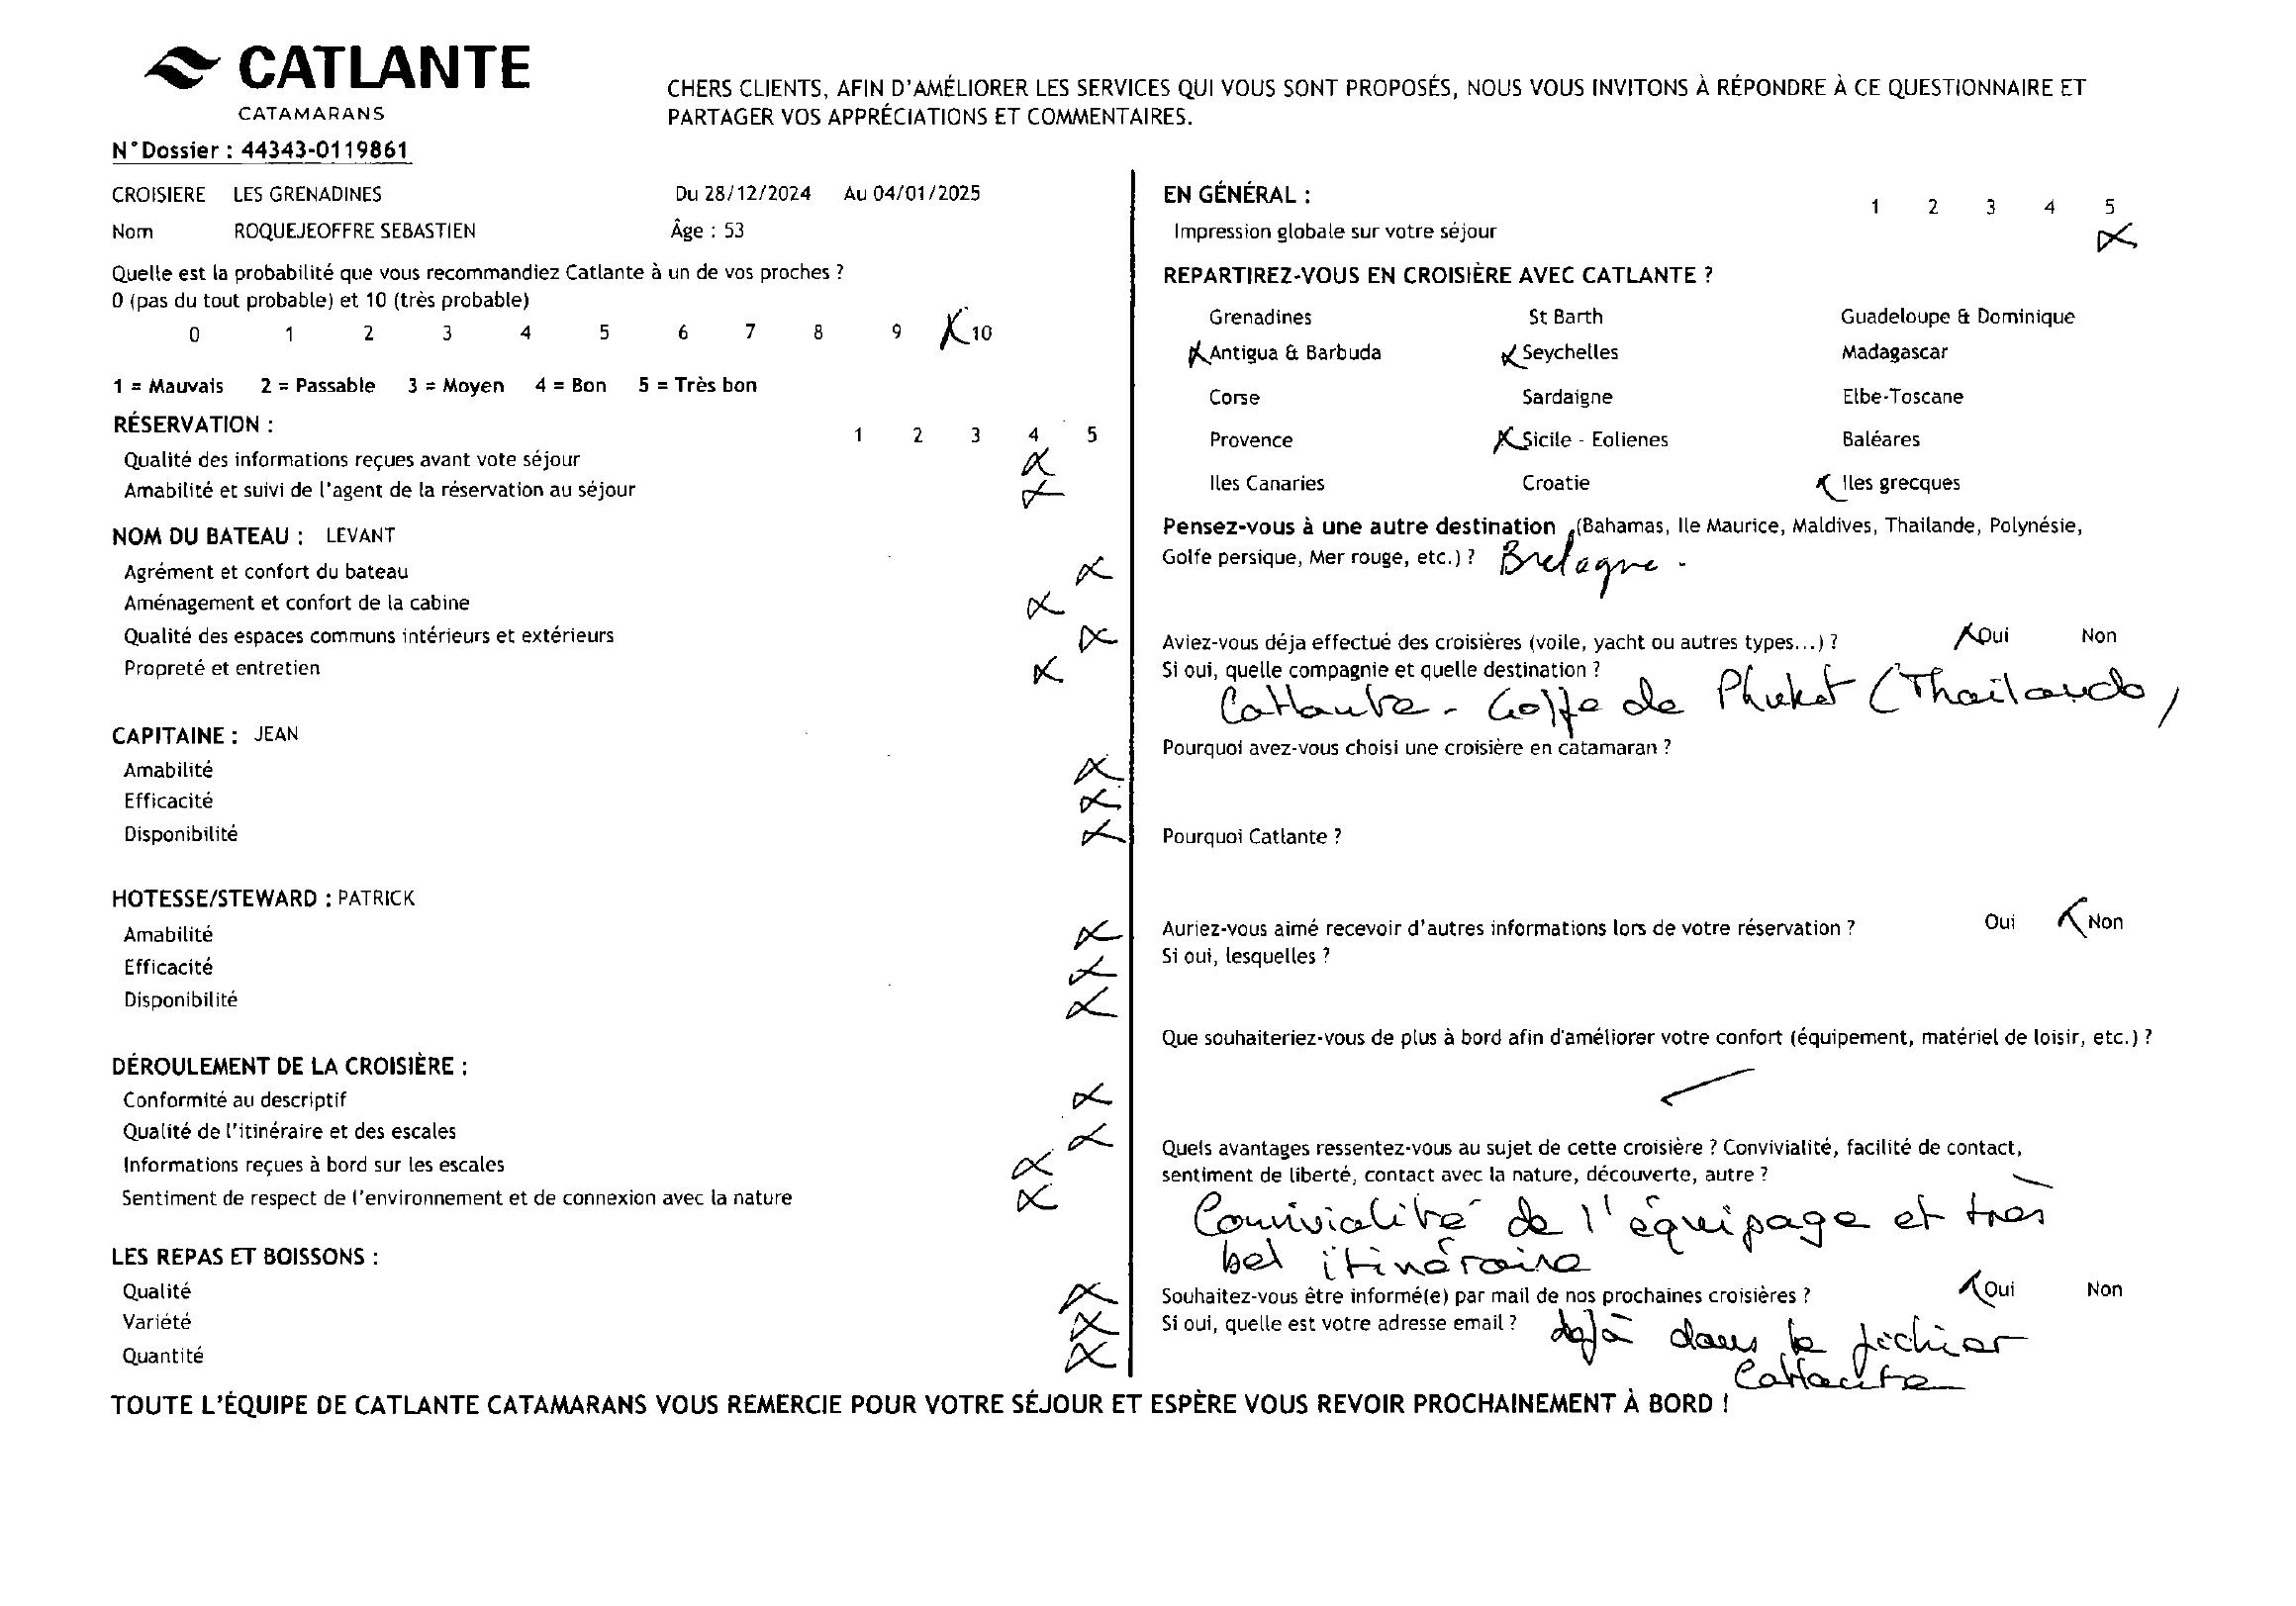 CATLANTE
CATAMARANS
CHERS CLIENTS, AFIN D'AMÉLIORER LES SERVICES QUI VOUS SONT PROPOSÉS, NOUS VOUS INVITONS À RÉPONDRE À CE QUESTIONNAIRE ET
PARTAGER VOS APPRÉCIATIONS ET COMMENTAIRES.
N°Dossier : 44343-0119861
CROISIERE LES GRENADINES Du 28/12/2024 Au 04/01/2025
Nom ROQUEJEOFFRE SEBASTIEN Âge : 53
Quelle est la probabilité que vous recommandiez Catlante à un de vos proches ?
0 (pas du tout probable) et 10 (très probable)
0 1 2 3 4 5 6 7 8 9 X 10
1 = Mauvais 2 = Passable 3 = Moyen 4 = Bon 5 = Très bon
RÉSERVATION :
1 2 3 4 5
Qualité des informations reçues avant vote séjour X
Amabilité et suivi de l'agent de la réservation au séjour X
NOM DU BATEAU : LEVANT
Agrément et confort du bateau X
Aménagement et confort de la cabine X
Qualité des espaces communs intérieurs et extérieurs X
Propreté et entretien X
CAPITAINE : JEAN
Amabilité X
Efficacité X
Disponibilité X
HOTESSE/STEWARD : PATRICK
Amabilité X
Efficacité X
Disponibilité X
DÉROULEMENT DE LA CROISIÈRE :
Conformité au descriptif X
Qualité de l'itinéraire et des escales X
Informations reçues à bord sur les escales X
Sentiment de respect de l'environnement et de connexion avec la nature X
LES REPAS ET BOISSONS :
Qualité X
Variété X
Quantité X
EN GÉNÉRAL :
1 2 3 4 5
Impression globale sur votre séjour X
REPARTIREZ-VOUS EN CROISIÈRE AVEC CATLANTE ?
Grenadines St Barth Guadeloupe & Dominique
X Antigua & Barbuda X Seychelles Madagascar
Corse Sardaigne Elbe-Toscane
Provence X Sicile - Eolienes Baléares
Iles Canaries Croatie X Iles grecques
Pensez-vous à une autre destination (Bahamas, Ile Maurice, Maldives, Thailande, Polynésie,
Golfe persique, Mer rouge, etc.) ? Bretagne.
Aviez-vous déja effectué des croisières (voile, yacht ou autres types...) ? X Oui Non
Si oui, quelle compagnie et quelle destination ?
Catlante - Golfe de Phuket (Thaïlande)
Pourquoi avez-vous choisi une croisière en catamaran ?
Pourquoi Catlante ?
Auriez-vous aimé recevoir d'autres informations lors de votre réservation ? Oui X Non
Si oui, lesquelles ?
Que souhaiteriez-vous de plus à bord afin d'améliorer votre confort (équipement, matériel de loisir, etc.) ?
Quels avantages ressentez-vous au sujet de cette croisière ? Convivialité, facilité de contact,
sentiment de liberté, contact avec la nature, découverte, autre ?
Convivialité de l'équipage et très
bel itinéraire
Souhaitez-vous être informé(e) par mail de nos prochaines croisières ? X Oui Non
Si oui, quelle est votre adresse email ? déjà dans le fichier
Catlante
TOUTE L'ÉQUIPE DE CATLANTE CATAMARANS VOUS REMERCIE POUR VOTRE SÉJOUR ET ESPÈRE VOUS REVOIR PROCHAINEMENT À BORD !